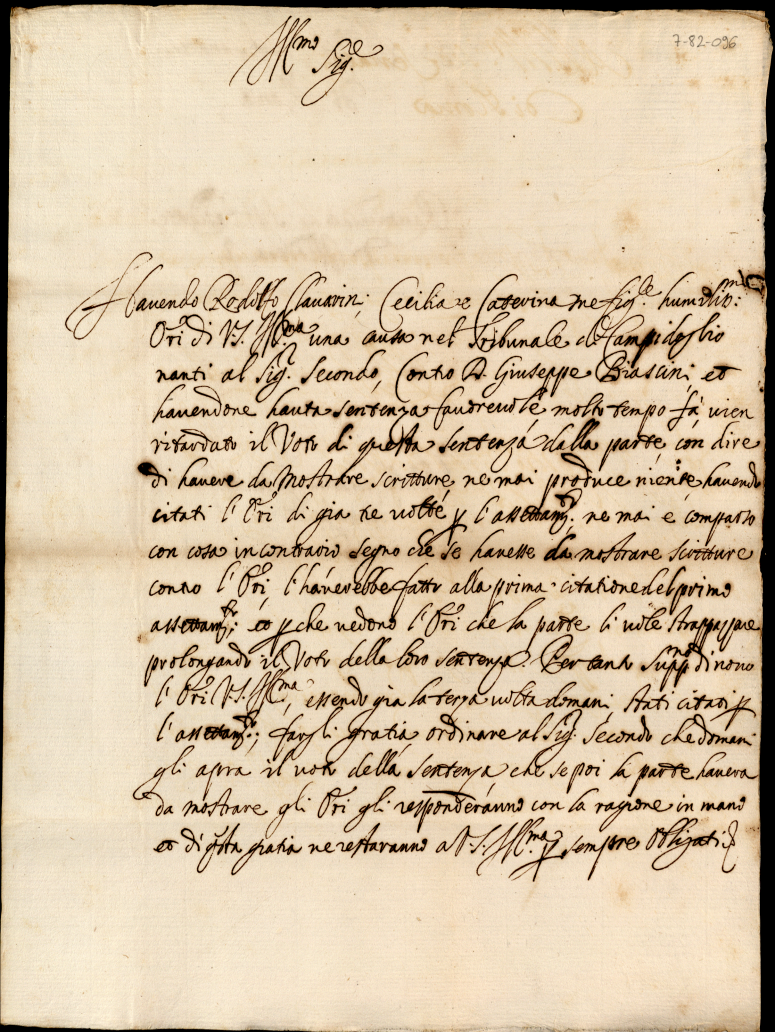 7-82-096
Ill.mo Sig.re
Havendo Rodolfo Clavarini, Cecilia e Caterina humil.mi
Or.i di V.S. Ill.ma una causa nel Tribunale di Campidoglio
nanti al Sig.r Secondo, Contro D. Giuseppe Biascini, et
havendone hauta sentenza favorevole, molto tempo fà vien
ritardato il Voto di questa sentenza dalla parte, con dire
di havere da mostrare scritture, ne mai produce niente, havendo
citati l'Or.i di gia tre volte p ne mai e comparso
con cosa in contrario segno che se havesse da mostrare scritture
contro l'Or.i, l'haverebbe fatto alla prima citatione del primo
et p che vedono l'Or.i che la parte li vole strappazzare
prolongando il Voto della loro sentenza. Per tanto supp.no di novo
l'Or.i V.S. Ill.ma, essendo gia la terza volta domani stati citati p
fargli gratia, ordinare al Sig.r Secondo che domani
gli apra il voto della sentenza, che se poi la parte haverà
da mostrare gli Or.i gli responderanno con la ragione in mano
et di q.sta gratia ne restaranno a V.S. Ill.ma p sempre obligati